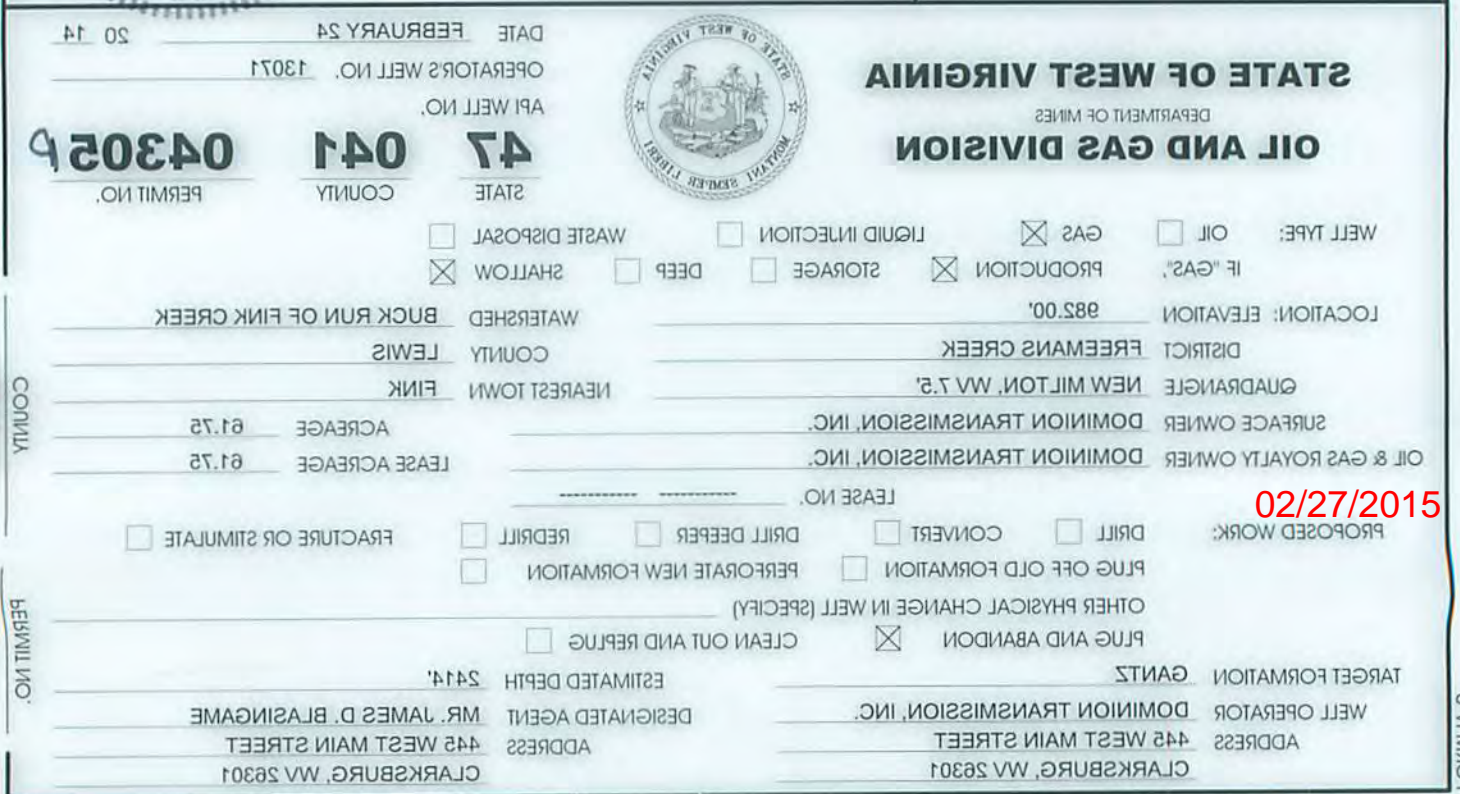 STATE OF WEST VIRGINIA
DEPARTMENT OF MINES
OIL AND GAS DIVISION
STATE OF WEST VIRGINIA
MONTANI SEMPER LIBERI
DATE FEBRUARY 24 20 14
OPERATOR'S WELL NO. 13071
API WELL NO.
47 041 04305P
STATE COUNTY PERMIT NO.
WELL TYPE: OIL GAS LIQUID INJECTION WASTE DISPOSAL
IF "GAS", PRODUCTION STORAGE DEEP SHALLOW
LOCATION: ELEVATION 982.00' WATERSHED BUCK RUN OF FINK CREEK
DISTRICT FREEMANS CREEK COUNTY LEWIS
QUADRANGLE NEW MILTON, WV 7.5' NEAREST TOWN FINK
SURFACE OWNER DOMINION TRANSMISSION, INC. ACREAGE 61.75
OIL & GAS ROYALTY OWNER DOMINION TRANSMISSION, INC. LEASE ACREAGE 61.75
LEASE NO. ----------- -----------
02/27/2015
PROPOSED WORK: DRILL CONVERT DRILL DEEPER REDRILL FRACTURE OR STIMULATE
PLUG OFF OLD FORMATION PERFORATE NEW FORMATION
OTHER PHYSICAL CHANGE IN WELL (SPECIFY)
PLUG AND ABANDON CLEAN OUT AND REPLUG
TARGET FORMATION GANTZ ESTIMATED DEPTH 2414'
WELL OPERATOR DOMINION TRANSMISSION, INC. DESIGNATED AGENT MR. JAMES D. BLASINGAME
ADDRESS 445 WEST MAIN STREET ADDRESS 445 WEST MAIN STREET
CLARKSBURG, WV 26301 CLARKSBURG, WV 26301
COUNTY
PERMIT NO.